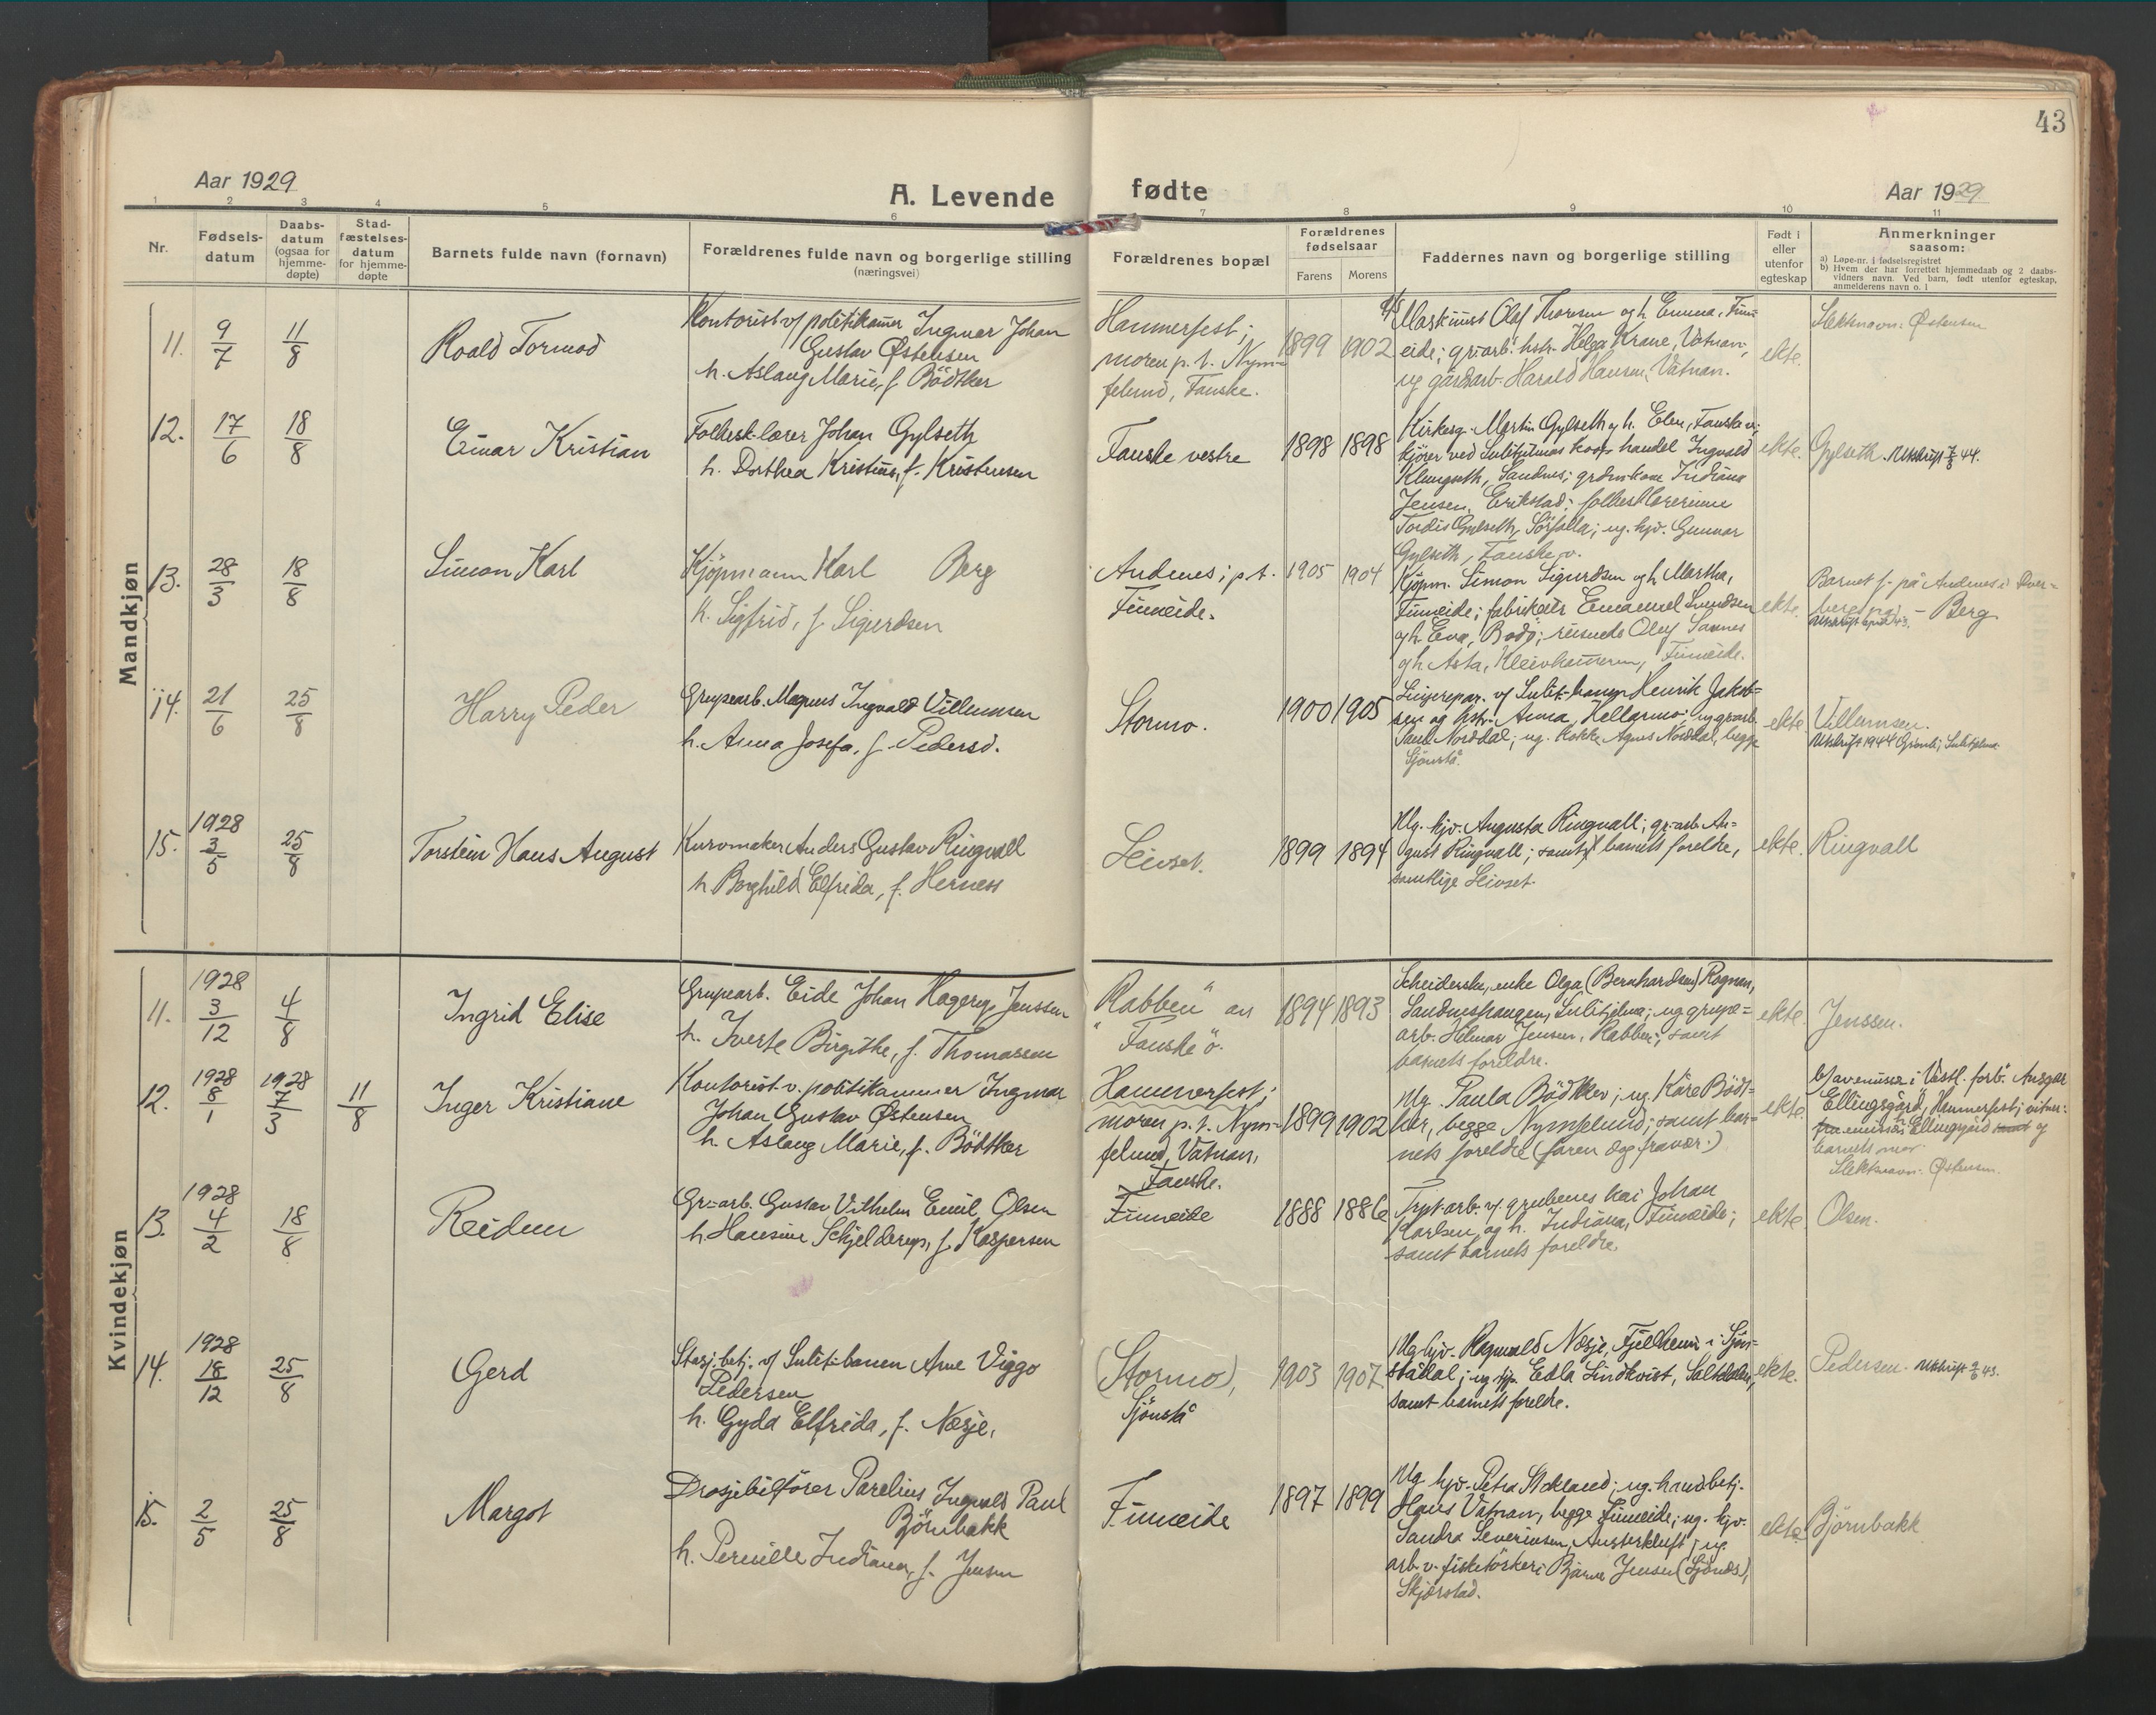 43
Aar 1929
A. Levende fødte
Aar 1929
1 2 3 4 5 6 7 8 9 10 11
Nr.
Fødsels-
datum
Daabs-
datum
(ogsaa for
hjemme-
døpte)
Stad-
fæstelses-
datum
for hjemme-
døpte
Barnets fulde navn (fornavn)
Forældrenes fulde navn og borgerlige stilling
(næringsvei)
Forældrenes bopæl
Forældrenes
fødselsaar
Farens Morens
Faddernes navn og borgerlige stilling
Født i
eller
utenfor
egteskap
Anmerkninger
saasom:
a) Løpe-nr. i fødselsregistret
b) Hvem der har forrettet hjemmedaab og 2 daabs-
vidners navn. Ved barn, født utenfor egteskap,
anmelderens navn o. l
Mandkjøn
11. 9/7 11/8
Roald Tormod
Kontorist v/ politikamer Ingmar Johan
Gustav Østensen
h. Aslaug Marie, f. Bödtker
Hammerfest;
moren p. t. Nym-
felund, Fauske.
1899 1902
Maskinist Olaf Thoresen og h. Emma, Finn-
eide; gr.arb. hstr. Helga Krane, Vatnan;
ug gårdarb. Harald Hansen, Vatnan.
ekte.
Slektsnavn: Østensen
12. 17/6 18/8
Einar Kristian
Folkesk.lærer Johan Gylseth
h. Dorthea Kristine, f. Kristensen
Fauske vestre
1898 1898
Kirkesg. Martin Gylseth og h. Elen, Fauske v;
kjører ved Sulitjelmas koop. handel Ingvald
Klungseth, Sandnes; grdm.kone Indiana
Jensen, Erikstad; folkesk.lærerinne
Tordis Gylseth, Sörfolla; ug. hjv. Gunvor
Gylseth, Fauske v.
ekte.
Gylseth. Utskrift 7/8 44.
13. 28/3 18/8
Simon Karl
Kjøpmann Karl Berg
h. Sigfrid, f. Sigurdsen
Andenes; p.t.
Finneide.
1905 1904
Kjøpm. Simon Sigurdsen og h. Martha,
Finneide; fabrikeier Emanuel Svendsen
og h. Eva, Bodö; reisende Olaf Sannes
og h. Asta, Kleivhammeren, Finneide.
ekte.
Barnet f. på Andenes i Dver-
berg pgj. – Berg.
14. 21/6 25/8
Harry Peder
Grupearb. Magnus Ingvald Villumsen
h. Anna Josefa, f. Pedersd.
Stormo.
1900 1905
Linjerepar. v/ Sulit.banen Henrik Jakob-
sen og hstr. Anna, Hellarmo; ug grarb.
Paul Norddal; ug. kokke Agnes Norddal, begge
Sjönstå.
ekte.
Villumsen.
Utskrift 1944 Sulitjelma
15. 1928 3/5 25/8
Torstein Hans August
Kurvmaker Anders Gustav Ringvall
h. Borghild Elfrida, f. Herness
Leivset.
1899 1894
Ug. hjv. Augusta Ringvall; gr.arb. Au-
gust Ringvall; samt barnets foreldre,
samtlige Leivset.
ekte.
Ringvall
Kvindekjøn
11. 1928 3/12 4/8
Ingrid Elise
Grupearb. Eide Johan Hagerup Jenssen
h. Iverte Birgithe, f. Thomassen
"Rabben" av
Fauske ö.
1894 1893
Scheiderske, enke Olga (Bernhardsen) Rognan,
Sandneshaugen, Sulitjelma; ug grupe-
arb. Hilmar Jensen, Rabben; samt
barnets foreldre.
ekte.
Jenssen.
12. 1928 8/1 1928 7/3 11/8
Inger Kristiane
Kontorist v. politikammer Ingmar
Johan Gustav Østensen
h. Aslaug Marie, f. Bödtker
Hammerfest;
moren p. t. Nym-
felund, Vatnan,
Fauske.
1899 1902
Ug. Paula Bödtker; ug. Kåre Bödt-
ker, begge Nymfelund; samt bar-
nets foreldre (faren dog fravær.)
ekte.
b/ av emissær i Vestl. forb. Ansgar
Ellingsgård, Hammerfest; vitner:
fru emissær Ellingsgård samt og
barnets mor
Slektsnavn: Østensen.
13. 1928 4/2 18/8
Reidun
Gr.arb. Gustav Vilhelm Emil Olsen
h. Hansine Schjelderup, f. Kaspersen
Finneide
1888 1886
arb. v/ grubenes kai Johan
Karlsen og h. Indiana, Finneide;
samt barnets foreldre.
ekte.
Olsen.
14. 1928 18/12 25/8
Gerd
Stasj.betj. v/ Sulit.banen Arne Viggo
Pedersen
h. Gyda Elfrida, f. Næsje,
(Stormo),
Sjönstå
1903 1907
Ug hjv. Ragnvald Næsje, Fjellheim i Sjön-
stådal; ug Edla Lindkvist, Saltdalen,
samt barnets foreldre.
ekte.
Pedersen. Utskrift 43.
15. 2/5 25/8
Margot
Drosjebilförer Parelius Ingvald Paul
Björnbakk
h. Pernille Indiana, f. Jensen
Finneide
1897 1899
Ug. hjv. Petra Stokland; ug. handbetj.
Hans Vatnan, begge Finneide; ug. hjv.
Sandra Severinsen, Austerkluft; ug.
arb. v. fisketörkeri Bjarne Jensen (Ljönes),
Skjerstad.
ekte.
Bjørnbakk